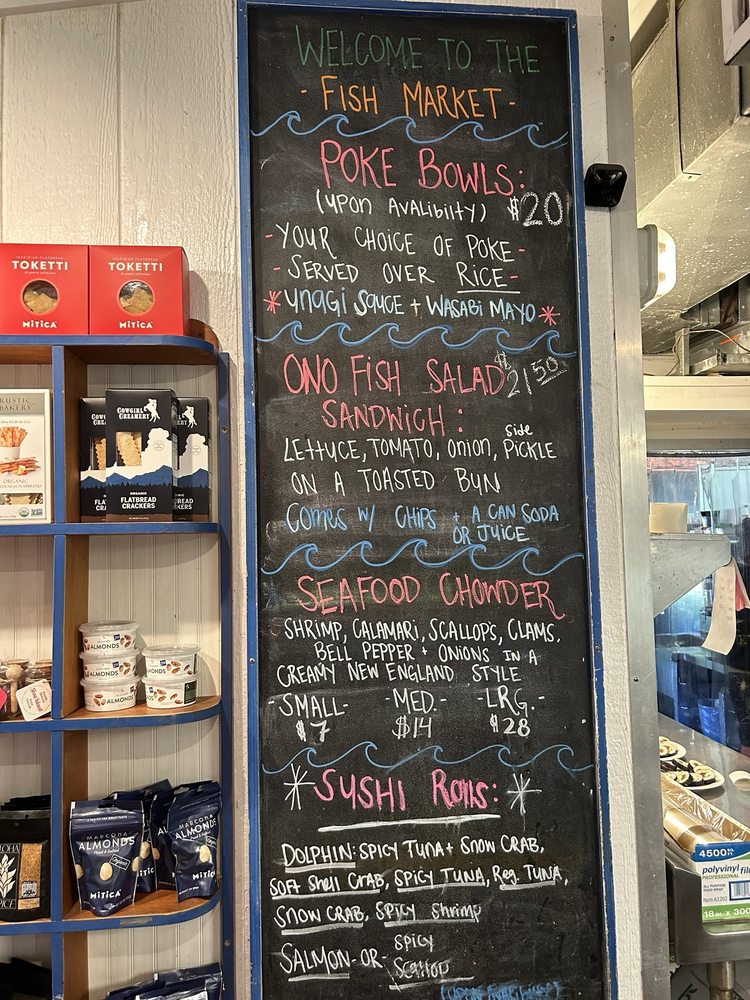 WELCOME TO THE
- FISH MARKET -
POKE BOWLS:
(UPON AVALIBILTY) $20
- YOUR CHOICE OF POKE -
- SERVED OVER RICE -
* UNAGI SAUCE + WASABI MAYO *
ONO FISH SALAD $21.50
SANDWICH:
LETTUCE, TOMATO, ONION, side PICKLE
ON A TOASTED BUN
COMES W/ CHIPS + A CAN SODA
OR JUICE
SEAFOOD CHOWDER
SHRIMP, CALAMARI, SCALLOPS, CLAMS,
BELL PEPPER + ONIONS IN A
CREAMY NEW ENGLAND STYLE
-SMALL- -MED.- -LRG.-
$7 $14 $28
* SUSHI ROLLS: *
DOLPHIN: SPICY TUNA + SNOW CRAB,
SOFT SHELL CRAB, SPICY TUNA, REG. TUNA,
SNOW CRAB, SPICY SHRIMP
SALMON -OR- SPICY
SCALLOP
TOKETTI
MITICA
TOKETTI
MITICA
RUSTIC
BAKERY
ORGANIC
COWGIRL
CREAMERY
ORGANIC
FLATBREAD
CRACKERS
ALMONDS
ALMONDS
ALMONDS
MARCONA
ALMONDS
MITICA
MARCONA
ALMONDS
MITICA
SPICE
4500
polyvinyl fil
PROFESSIONAL
ALL PURPOSE
FOOD WRAP
Item 63202
18 in. X 300